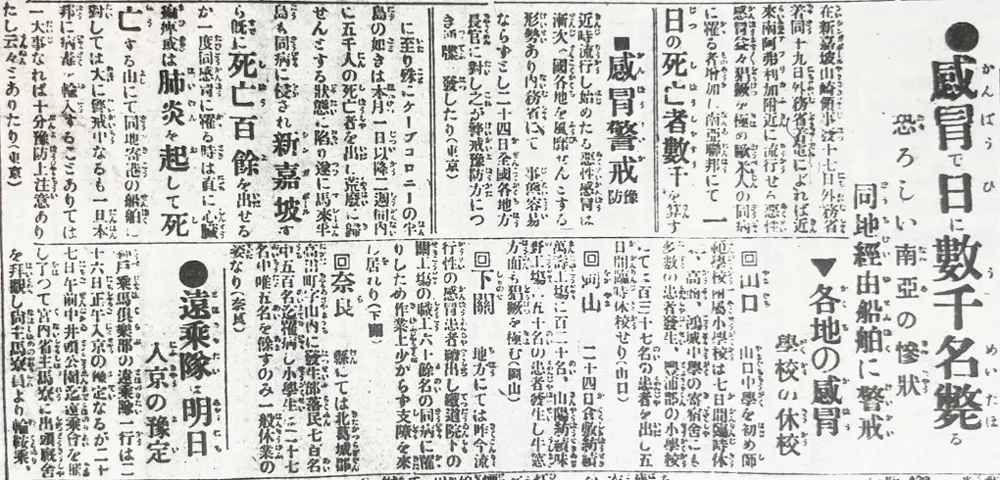 ●感冒で日に數千名斃る
恐ろしい南亞の慘狀
同地經由船舶に警戒
在新嘉坡山崎領事發十七日外務省
着同十九日外務省着電によれば近
來南阿弗利加附近に流行せる惡性
感冒益々猖獗を極め歐米人の同病
に罹る者增加し南亞聯邦にて一
日の死亡者數千を算す
■感冒警戒
豫防
近時流行し始めたる惡性感冒は
漸次全國各地を風靡せんとする
形勢あり内務省にて事態容易
ならずとし二十四日全國各地方
長官に對し之が警戒豫防方につ
き通牒を發したり(東京)
に至り殊にケープコロニーの半
島の如きは本月一日以降二週間内
に五千人の死亡者を出し荒廢に歸
せんとする狀態に陷り遂に馬來半
島も同病に侵され新嘉坡す
ら既に死亡百餘を出せる
が一度同感冒に罹る時は直に心臟
痲痺或は肺炎を起して死
亡する由にて同地寄港の船舶に
對しては大に警戒中なるも一旦本
邦に病毒を輸入することありては
一大事なれば十分豫防上注意あり
たし云々とありたり(東京)
▼各地の感冒
學校の休校
回山口 山口中學を初め師
範學校同附屬小學校は七日間臨時休
校、高商、鴻城中學の寄宿舍にも
多數の患者發生、
にて百三十七名の患者を出し五
日間臨時休校せり(山口)
回岡山 二十四日倉敷紡績
萬壽工場に百二十名、山陽紡績味
野工場に五十名の患者發生し牛窓
方面も猖獗を極む(岡山)
回下關 地方にては昨今流
行性の感冒患者續出し鐵道院下の
關工場の職工六十餘名の同病に罹
りしため作業上少からず支障を來
し居れり(下關)
回奈良 縣にては北葛城郡
高田町字山内に發生部落民七百名
中五百名迄罹病し小學生二百二十七
名中唯五名を餘すのみ一般休業の
姿なり(奈良)
●遠乘隊は明日
入京の豫定
神戸乘馬倶樂部の遠乘隊一行は二
十六日正午入京の豫定なるが二十
七日午前中井ノ頭公園迄遠乘會を催
し了つて宮内省主馬寮に出頭厩舍
を拜觀し尚主馬寮員より輪鞍乘